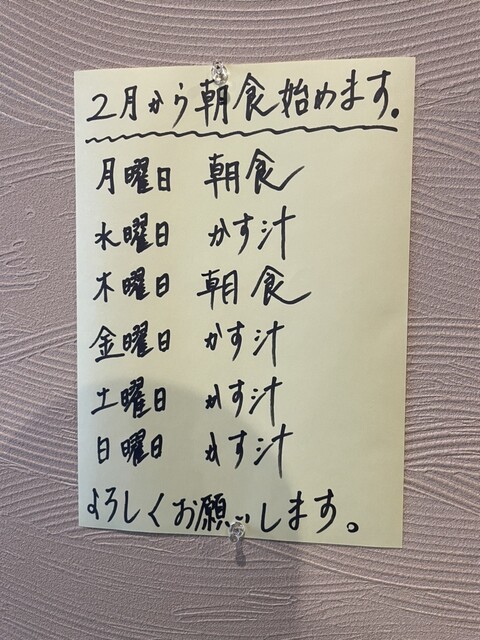 2月から朝食始めます。
月曜日 朝食
水曜日 かす汁
木曜日 朝食
金曜日 かす汁
土曜日 かす汁
日曜日 かす汁
よろしくお願いします。